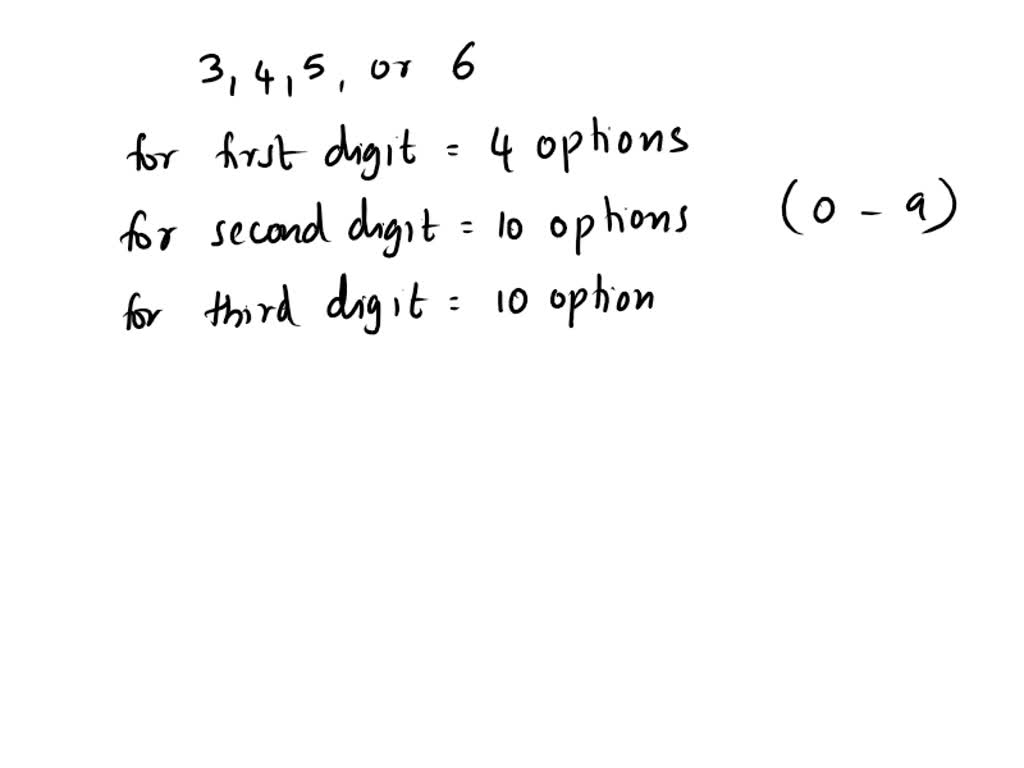 3, 4, 5, or 6
for first digit = 4 options
for second digit = 10 options (0 - 9)
for third digit = 10 option